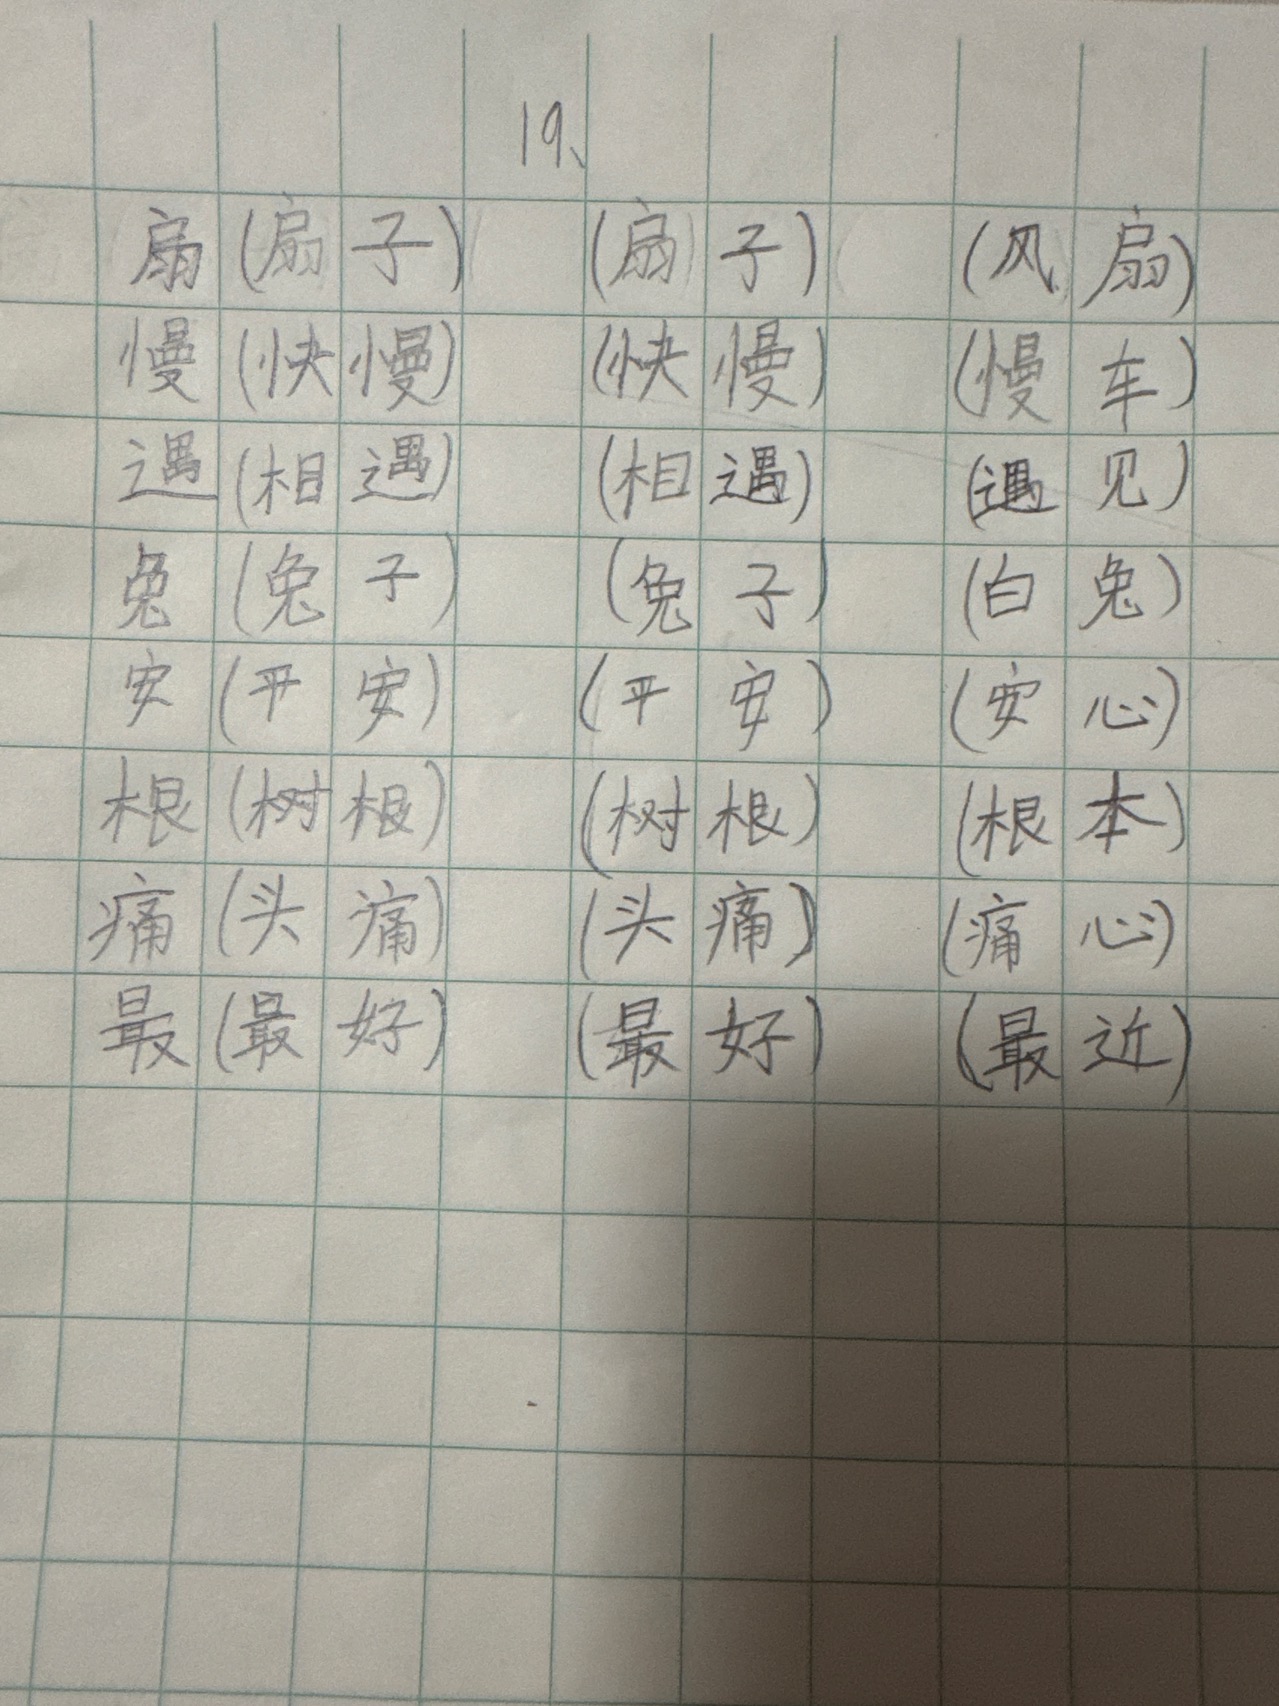 19、
扇(扇子) (扇子) (风扇)
慢(快慢) (快慢) (慢车)
遇(相遇) (相遇) (遇见)
兔(兔子) (兔子) (白兔)
安(平安) (平安) (安心)
根(树根) (树根) (根本)
痛(头痛) (头痛) (痛心)
最(最好) (最好) (最近)